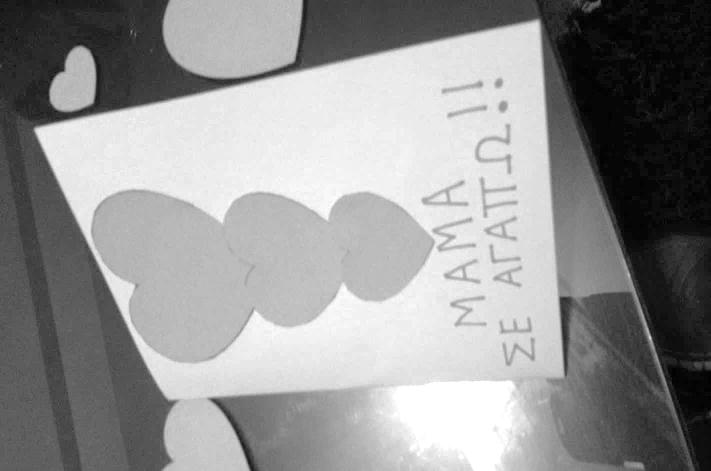 ΜΑΜΑ
ΣΕ ΑΓΑΠΩ!!